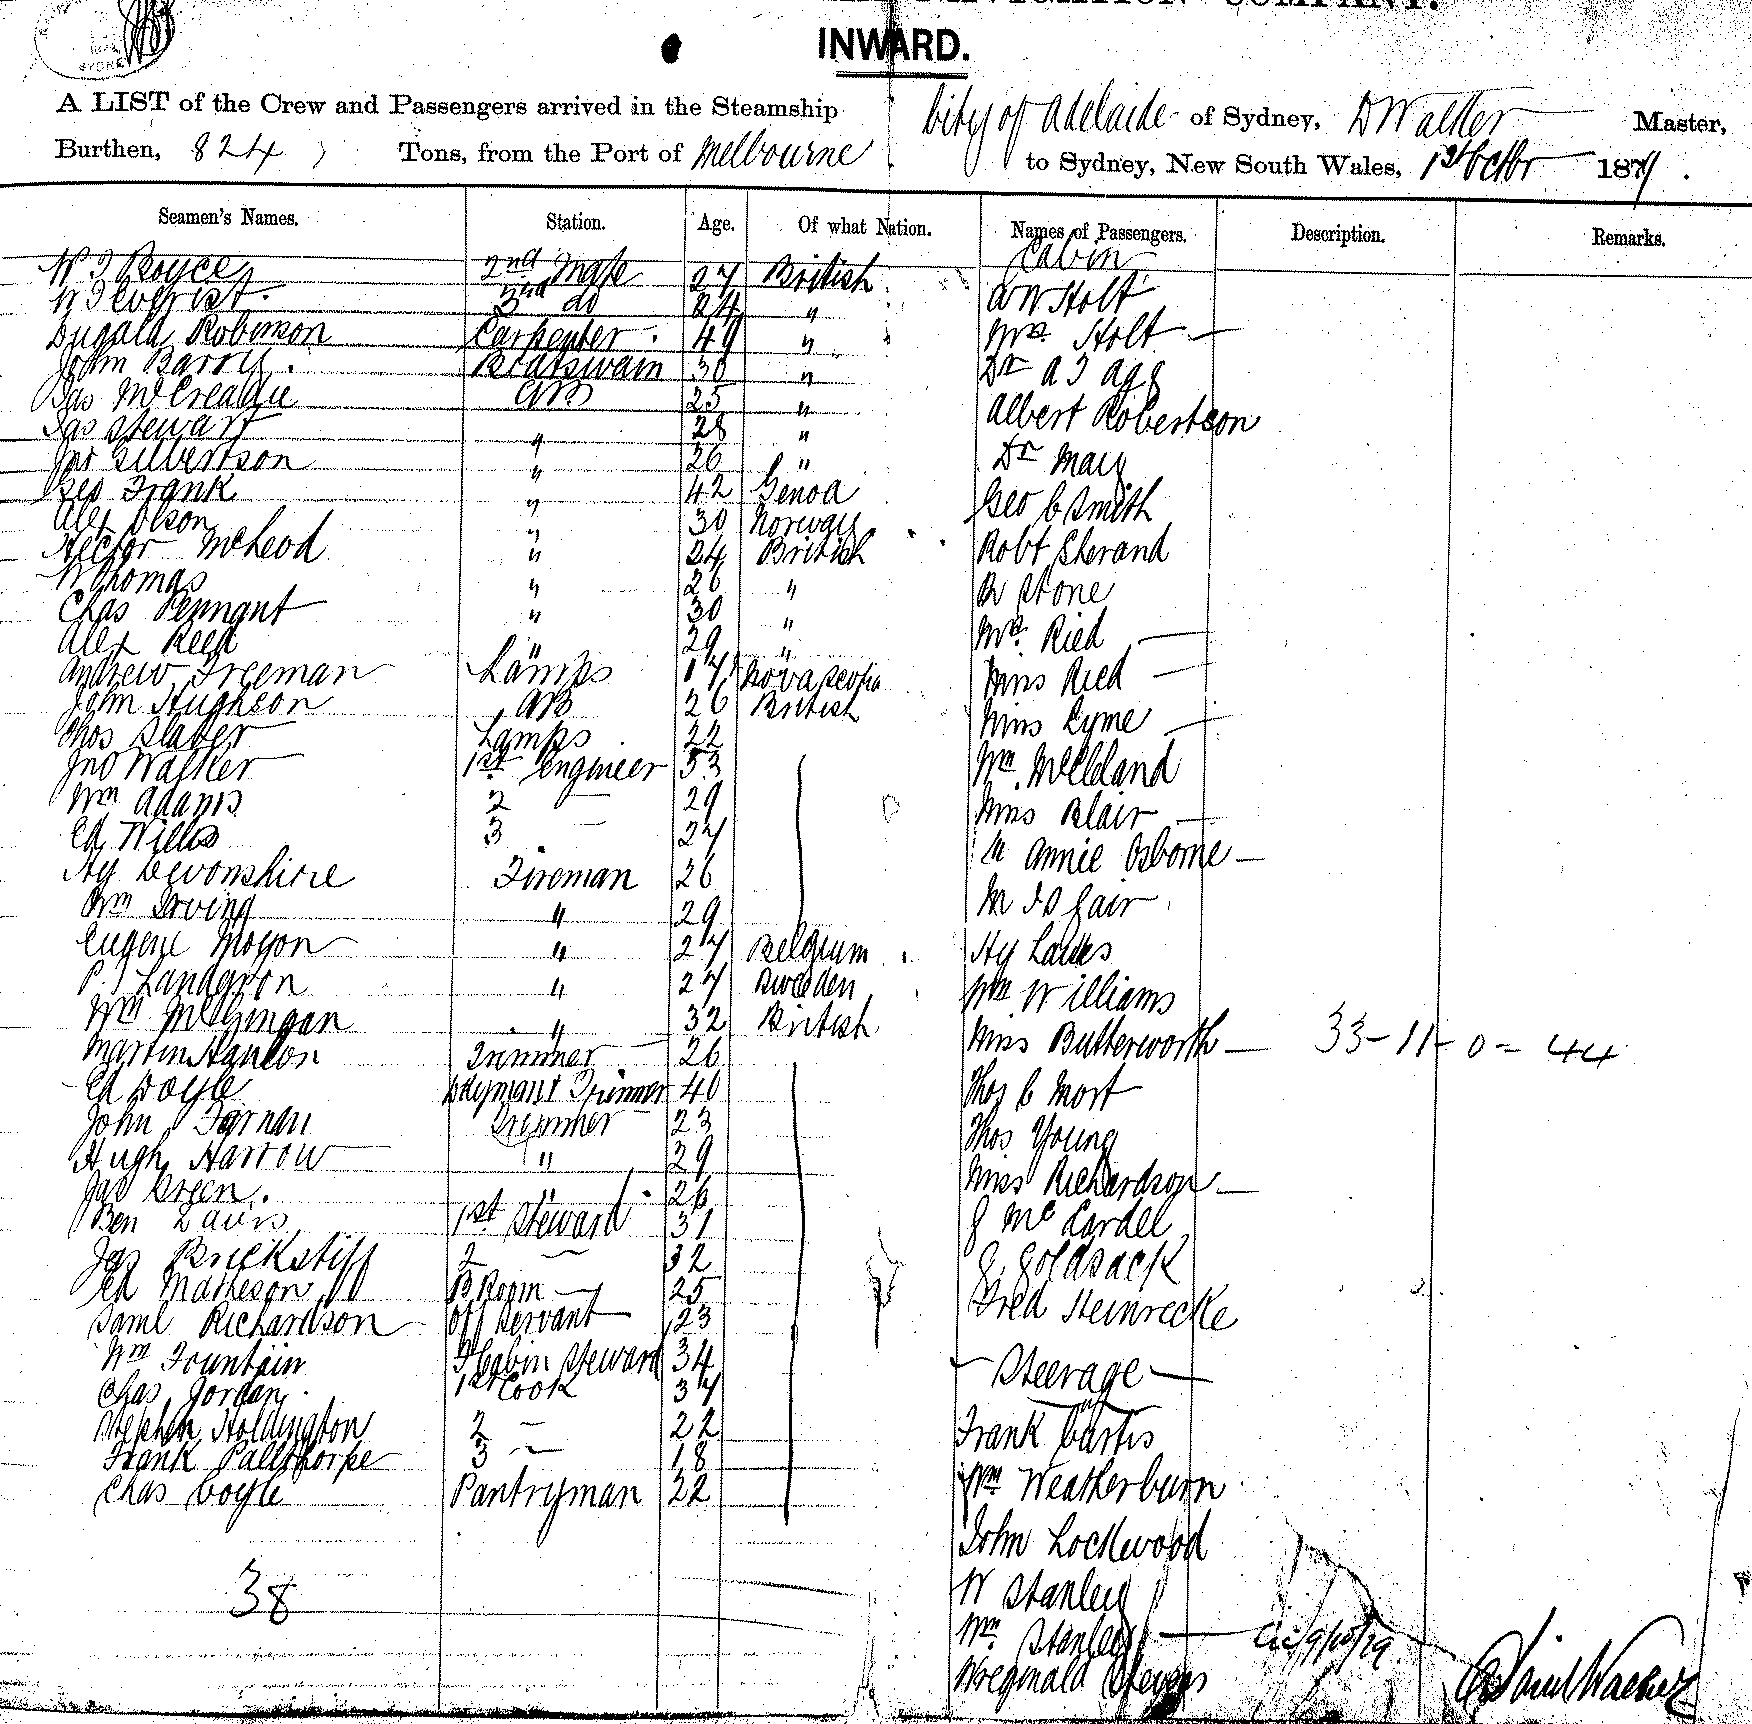 COMPANY.
INWARD.
A LIST of the Crew and Passengers arrived in the Steamship City of Adelaide of Sydney, D Walker Master,
Burthen, 824 Tons, from the Port of Melbourne to Sydney, New South Wales, 1st Octbr 187
Seamen's Names. Station. Age. Of what Nation. Names of Passengers. Description. Remarks.
Cabin
Boyce 2nd Mate 27 British
W Everist 3rd do 24 " W Holt
Dugald Robinson Carpenter 49 " Mrs Holt —
John Barry Boatswain 30 " Dr A J Agg
Jas McCreadie AB 25 " Albert Robertson
Jas Stewart " 28 "
Jas Gilbertson " 26 " Dr May
Geo Frank " 42 Genoa Geo C Smith
Alex Olson " 30 Norway
Hector McLeod " 24 British Robt Sherand
W Thomas " 26 " R Stone
Chas Pennant " 30 "
Alex Reed " 29 " Mrs Ried —
Andrew Freeman Lamps 17 Nova Scotia Miss Ried —
John Hughson AB 26 British
Thos Slater Lamps 22 Miss Lyme —
Jno Walker 1st Engineer 33 Wm McClland
Wm Adams 2 — 29 Miss Blair —
Ed Willis 3 — 27 Annie Osborne —
Hy Devonshire Fireman 26
Wm Irving " 29 M J D Gair
Eugene Moyon " 27 Belgium Hy
P. J Landgron " 27 Sweden Wm Williams
Wm McGingan " 32 British Miss Butterworth — 33-11-0-44
Martin Hanlon Trimmer 26
Ed Doyle Daymant Trimmer 40 Thos C Mort
John Farnan Trimmer 23 Thos Young
Hugh Harrow " 29 Miss Richardson —
Jas Green. " 26
Ben 1st Steward 31 J McCardel
Jas Brickstiff 2 — 32 J. Goldsack
Ed Matheson B Room — 25 Fred Steinrecke
Saml Richardson Off Servant 23
Wm Fountain F Cabin Steward 34 — Steerage —
Chas Jordan 1st Cook 37
Stephen Holdington 2 — 22 Frank Curtis
Frank Pallthorpe 3 — 18
Chas Coyle Pantryman 22 Wm Weatherburn
John Lockwood
38 W Stanley
Stanley —
Reginald Stevens